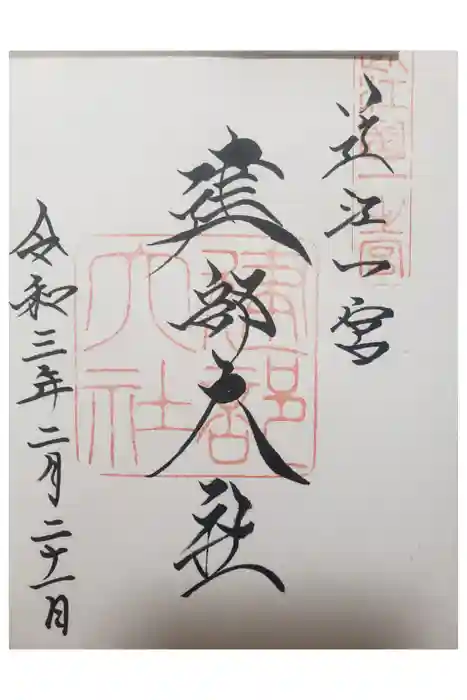 近江一宮
近江國一之宮
建部大社
建部大社
令和三年二月二十一日